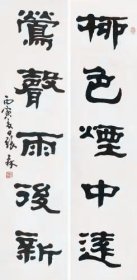 柳色煙中遠
鶯聲雨後新
丙寅 張森